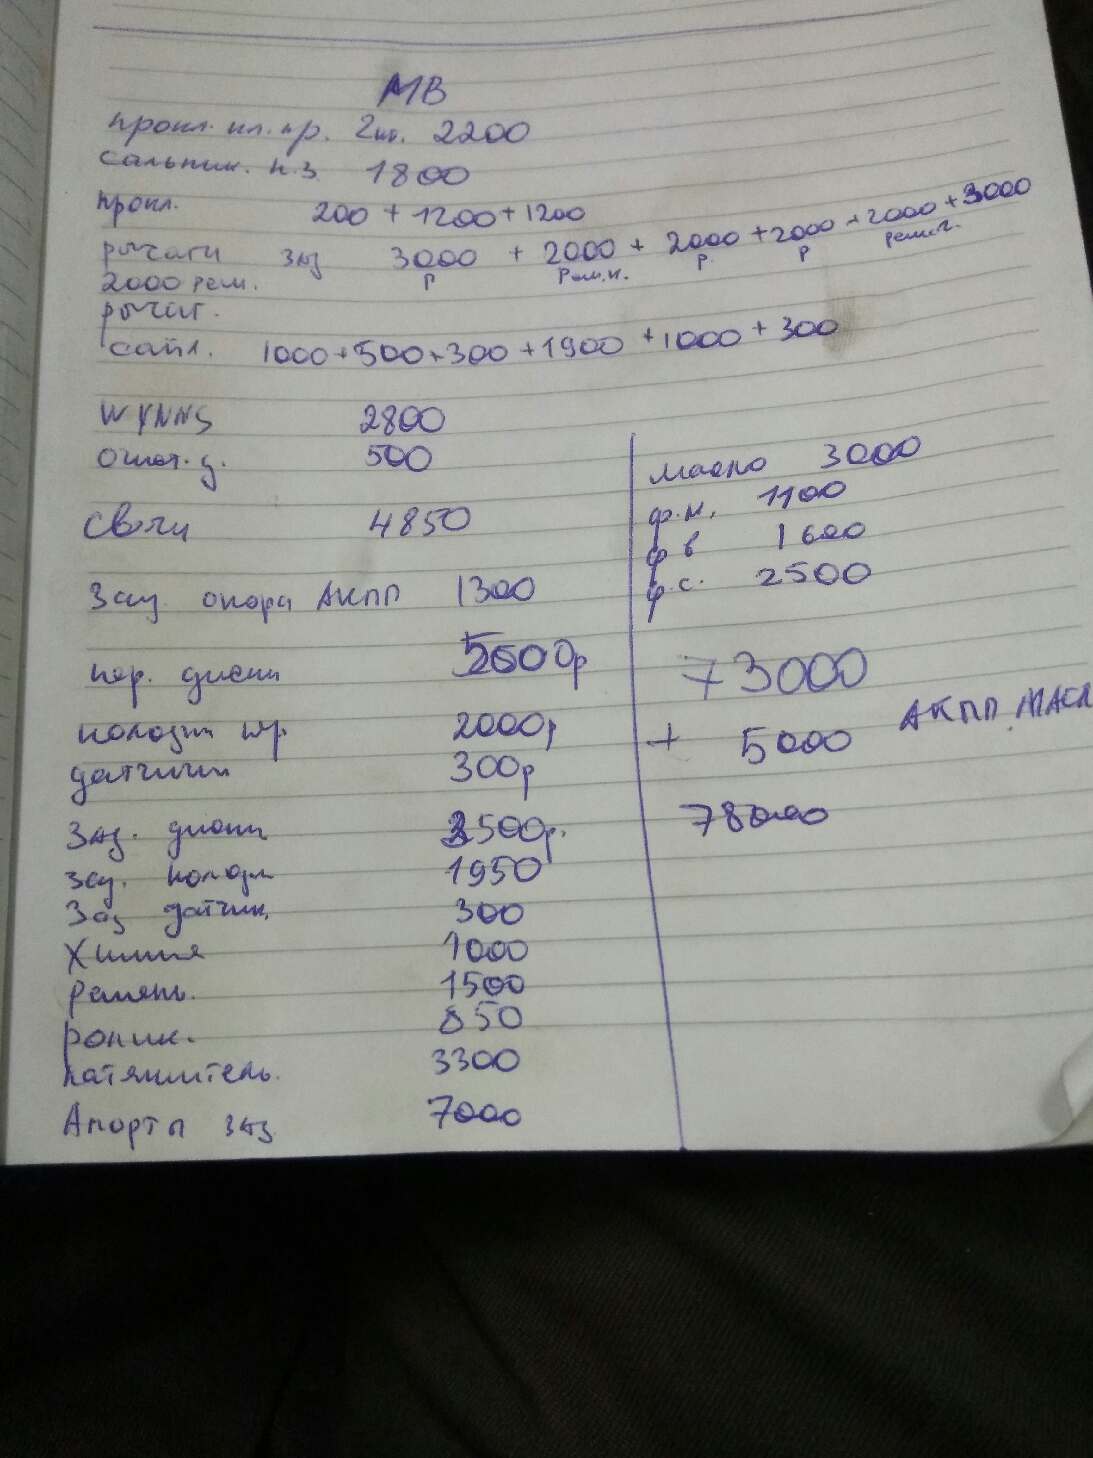 МВ
прокл. кл. кр. 2шт. 2200
сальник. к.з. 1800
прокл. 200 + 1200 + 1200
рычаги заз 3000 + 2000 + 2000 + 2000 + 2000 + 3000
р рем.к. р р рем.
2000 рем.
рычаг.
сайл. 1000 + 500 + 300 + 1900 + 1000 + 300
WYNNS 2800
500
свечи 4850
Зад. опора АКПП 1300
пер. диски 5600р
колодки пр 2000р
датчики 300р
Зад. диски 3500р.
зад. колодк 1950
Зад датчик. 300
Химия 1000
ремень. 1500
ролик. 850
натяжитель. 3300
Апорты заз 7000
масло 3000
ф.м. 1100
ф в 1600
ф.с. 2500
73000
+ 5000 АКПП МАСЛ
78000